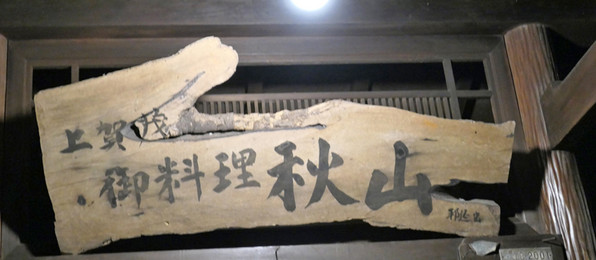 上賀茂
御料理秋山